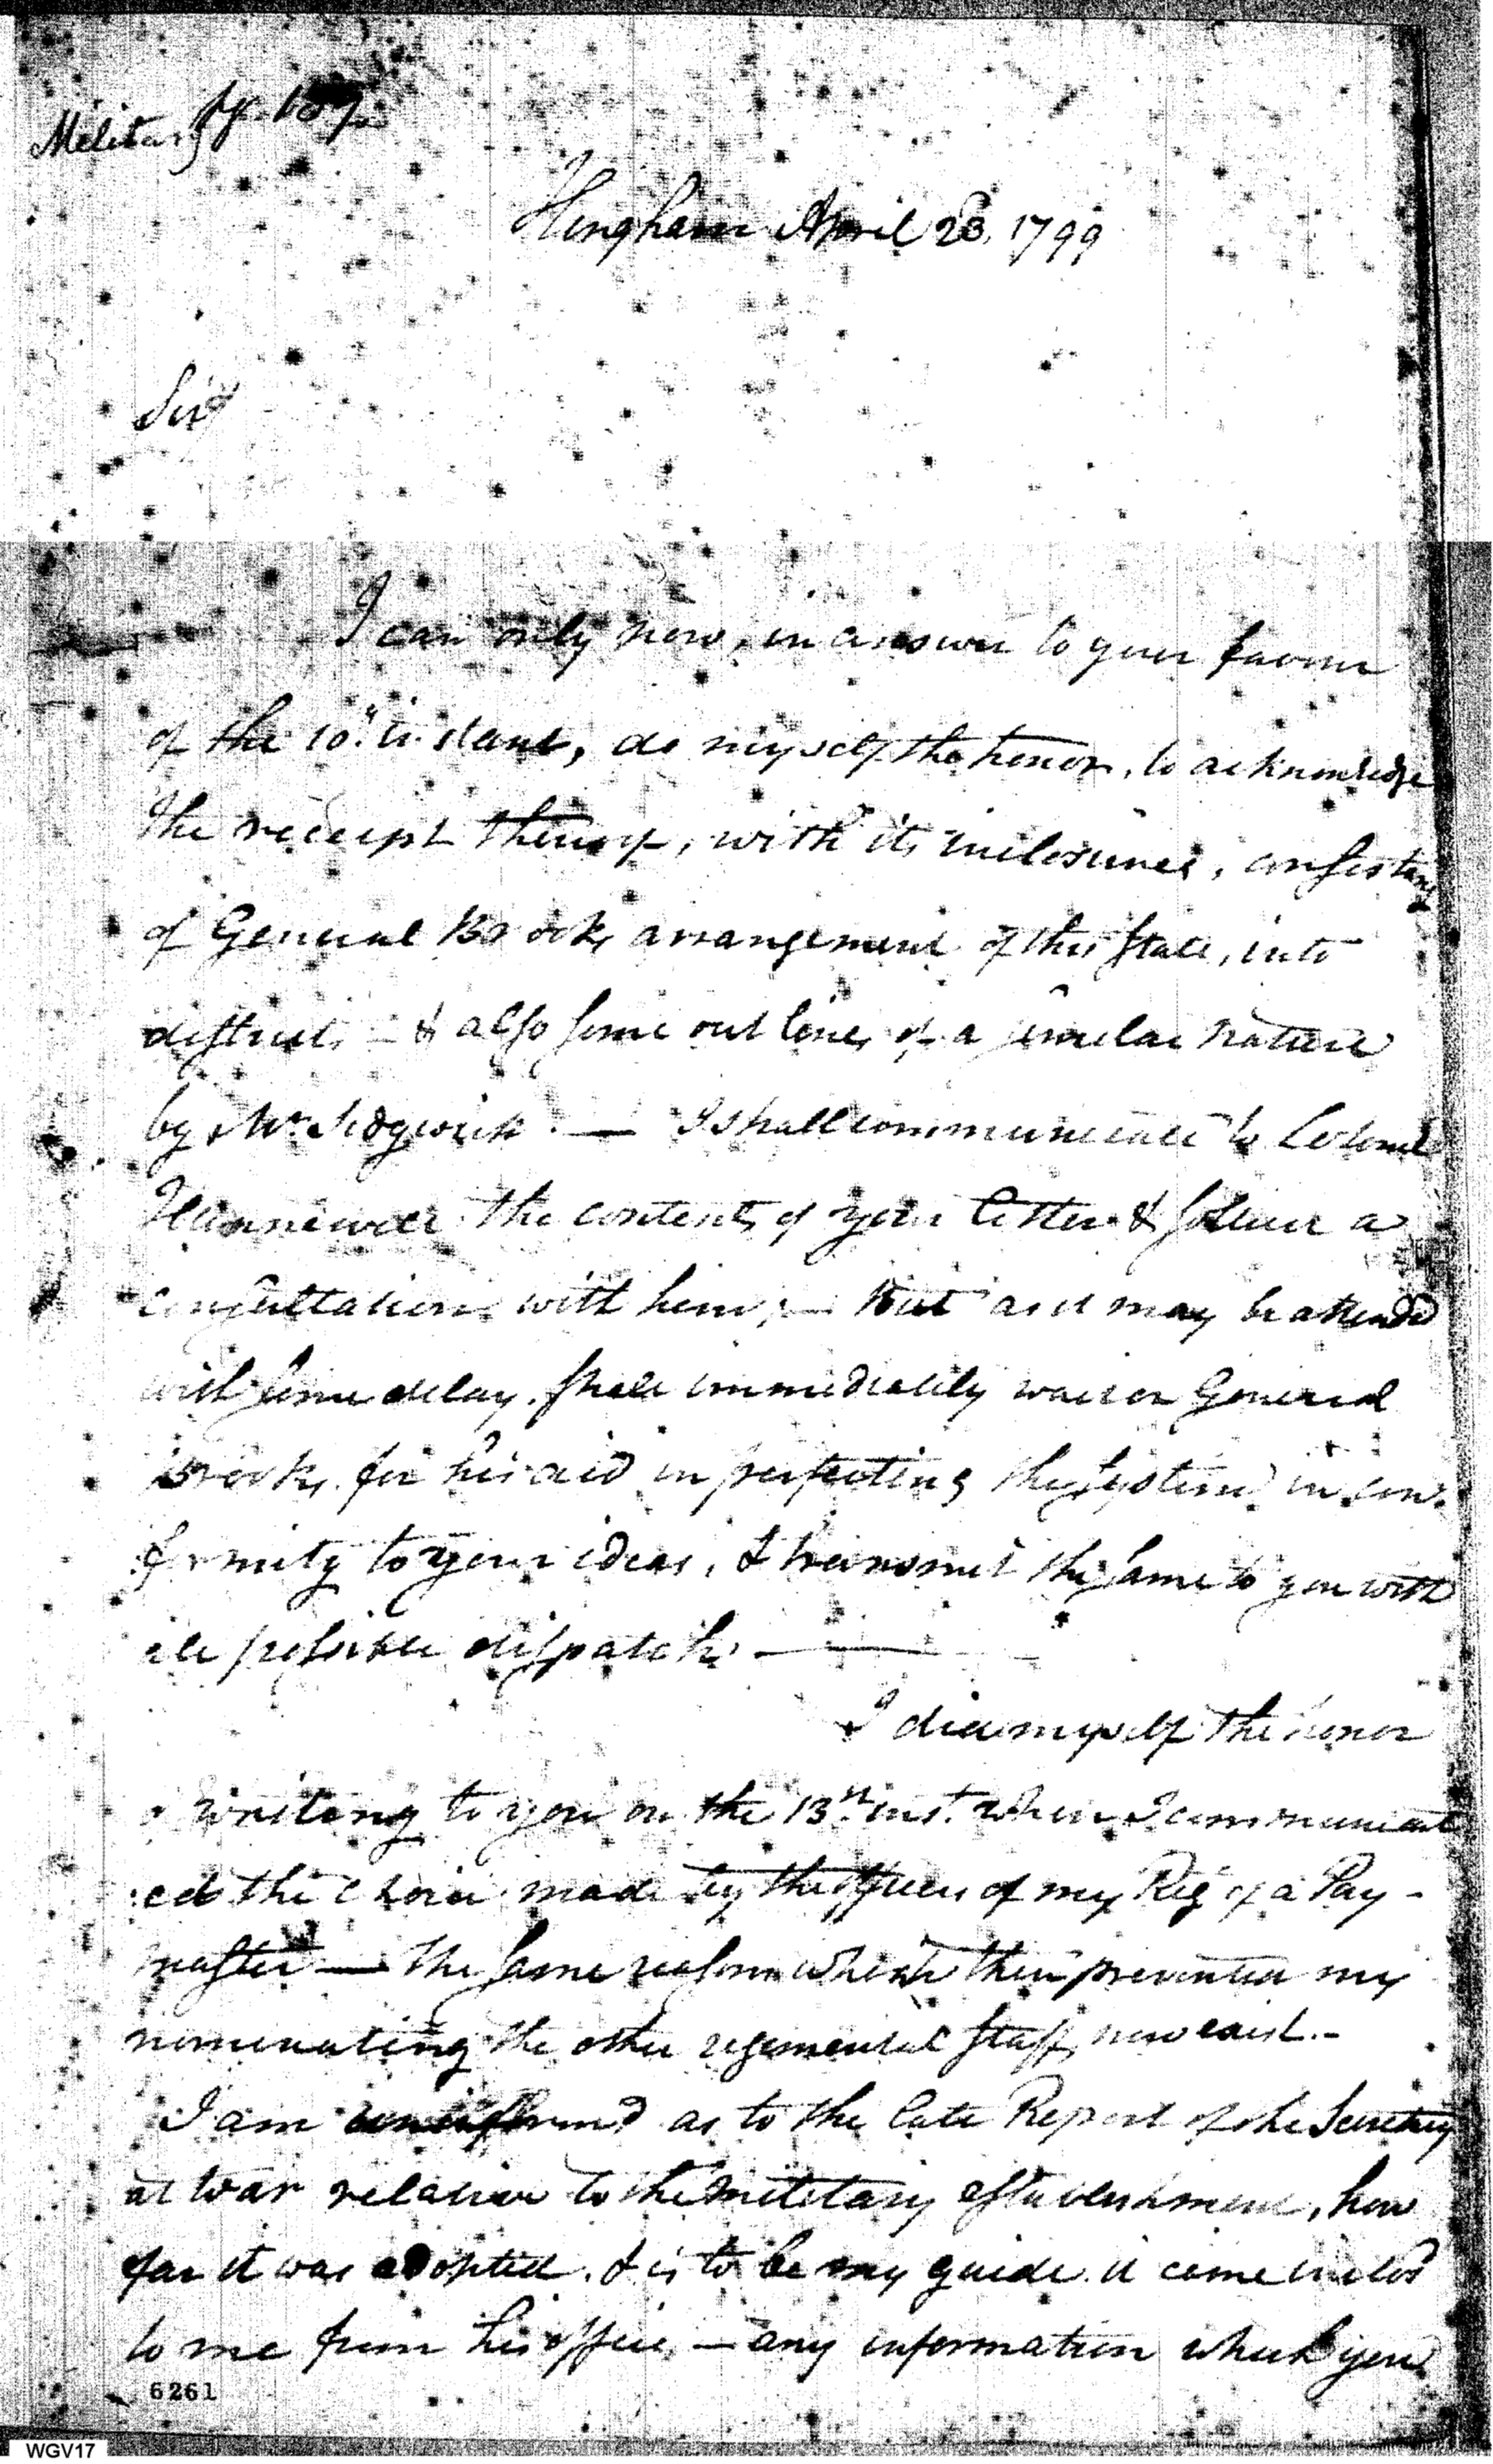 Military
Hingham April 23, 1799
Sir
I can only now, in answer to your favour
of the 10th instant, do myself the honor, to acknowledge
the receipt thereof, with its inclosures, consisting
of General Brooks arrangement of this State, into
districts – & also some out lines of a similar nature
by Mr Sedgwick. — I shall communicate to Colonel
Hunnewell the contents of your letter & solicit a
consultation with him; — but as it may be attended
with some delay, shall immediately wait on General
Brooks, for his aid in perfecting the System in con-
formity to your ideas, & transmit the same to you with
all possible dispatch. —
I did myself the honor
of writing to you on the 13th inst. when I communicat
ed the choice made by the officers of my Reg of a Pay-
master — The same reasons which then prevented my
nominating the other regimental staff, now exist. -
I am uninformed as to the late Report of the Secretary
at War relative to the military establishment, how
far it was adopted, & is to be my guide. it came inclosd
to me from his office, — any information which you
6261
WGV17